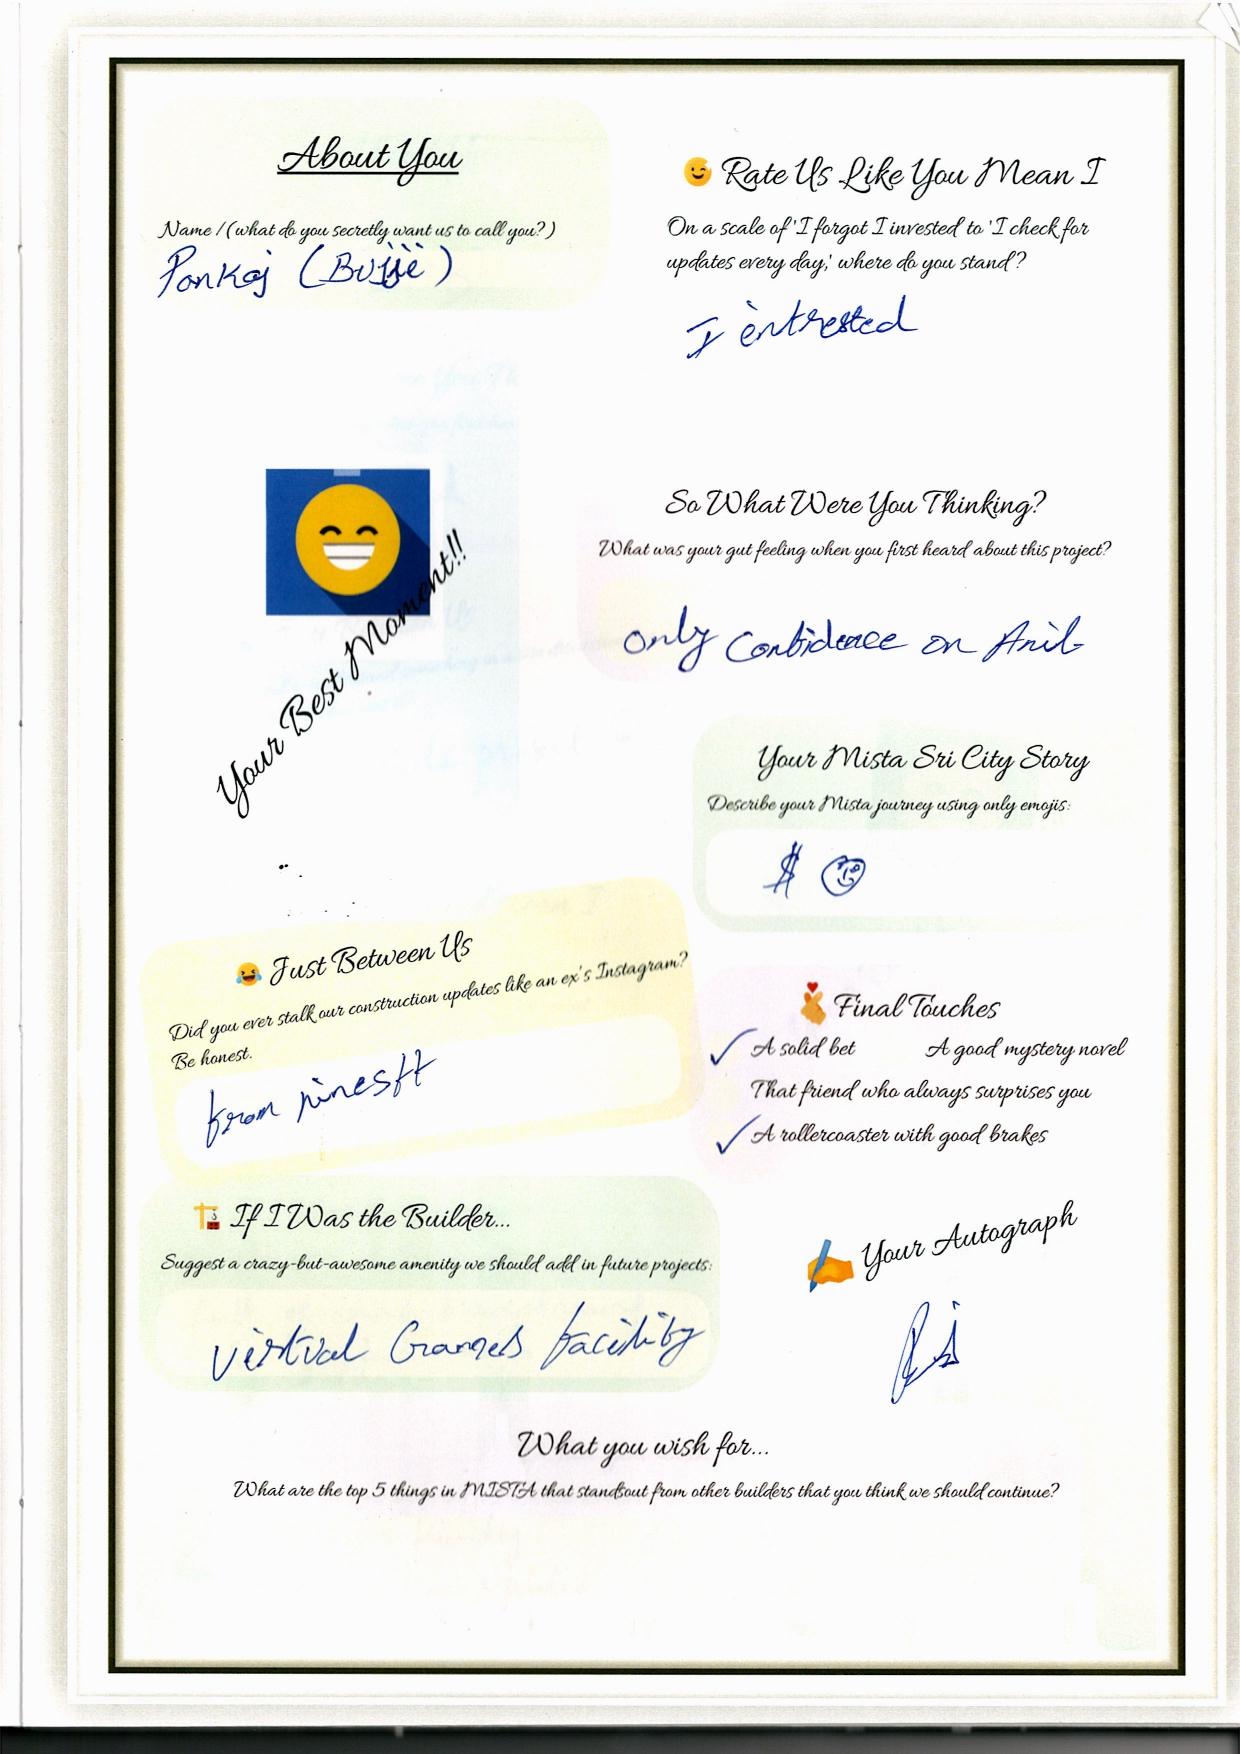 About You
Name / (what do you secretly want us to call you?)
Pankaj (Bujji)
😉 Rate Us Like You Mean I
On a scale of 'I forgot I invested to 'I check for
updates every day,' where do you stand?
I intrested
Your Best Moment!!
So What Were You Thinking?
What was your gut feeling when you first heard about this project?
only Confidence on Anil
Your Mista Sri City Story
Describe your Mista journey using only emojis:
$ 😊
😂 Just Between Us
Did you ever stalk our construction updates like an ex's Instagram?
Be honest.
from
Final Touches
✓ A solid bet A good mystery novel
That friend who always surprises you
✓ A rollercoaster with good brakes
🏗️ If I Was the Builder...
Suggest a crazy-but-awesome amenity we should add in future projects:
virtual Games facility
✍️ Your Autograph
What you wish for...
What are the top 5 things in MISTA that standsout from other builders that you think we should continue?